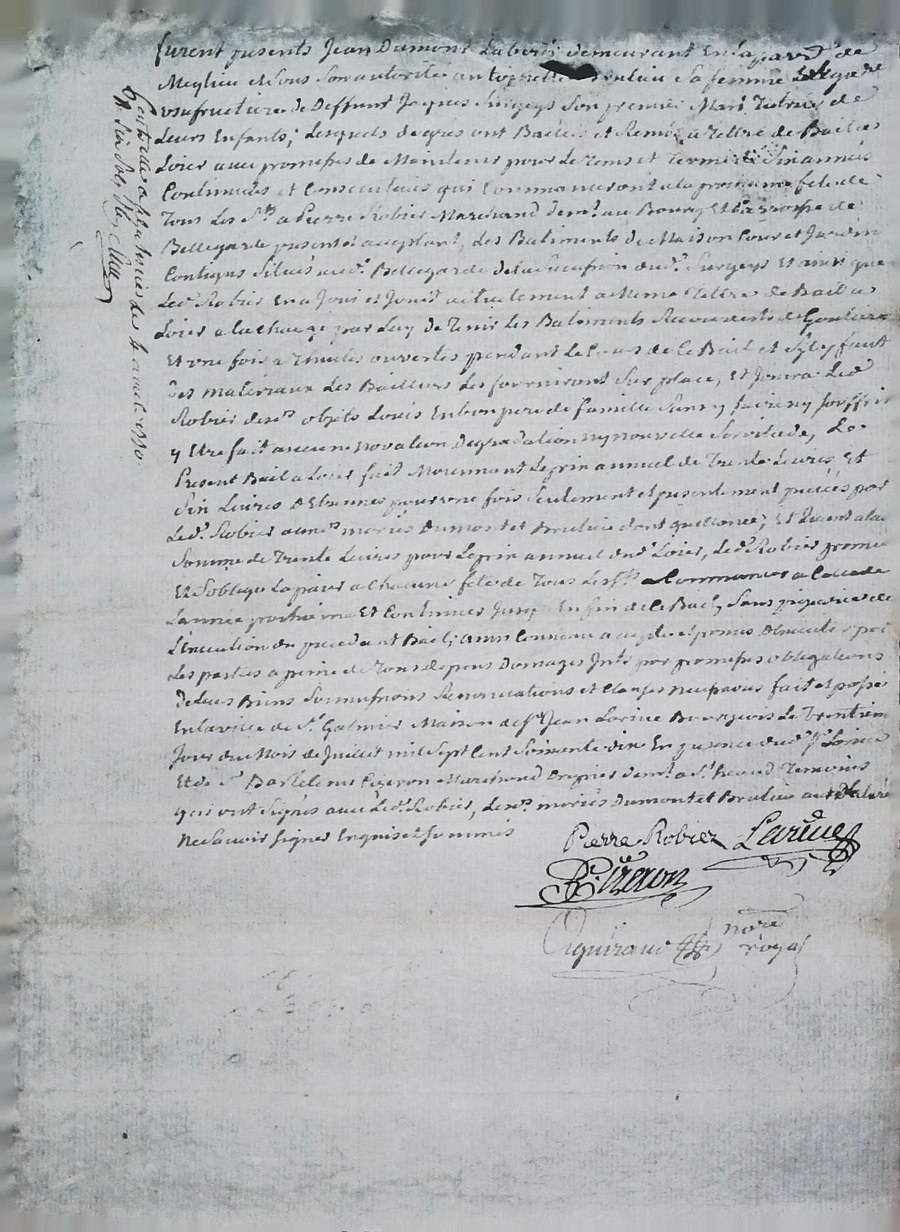 furent pnsents Jean Dumont Labour demeurant En la parr de
Meylieu et sous son autorite antoinette Brulieu sa femme
usufructuire de Deffunt Jacques Surgeys son premier Mari Tutrice de
Leurs Enfants; Lesquels de gré ont Bailliés et Remis a Tittre de Bail a
Loier aux promesses de Maintenir pour Le Tems et Terme de Six années
Continues et Consecutives qui Commanceront a la prochaine fete de
Tous Les Sts a Pierre Robier Marchand demt au Bourg Et parroisse de
Bellegarde pnsent et acceptant, des Batiments de Maison Cour et Jardin
Contigus Situés aud. Bellegarde de la Succession dud. Surgeys Et ainsi que
Led. Robier En a Joui et Jouit actuellement a Meme Tittre de Bail a
Loier a la charge par Luy de Tenir Les Batiments Recouverts de Goutieres
Et une fois a Thuiles ouvertes pendant Le Cours de Ce Bail et S'il y faut
des materiaux Les Bailleurs Les fourniront Sur place, Et Jouira Led.
Robier desd. objets Loués En bon pere de famille Sans y faire ny Souffrir
y Etre fait aucune novation degradation ny nouvelle Servitude, Le
Present Bail a Loier fait Moiennant Le prix annuel de Trente Livres, Et
Six Livres D'Etrennes pour une fois Seulement et pnsentement paiées par
Led. Robier auxd. mariés Dumont et Brulieu dont quittance; Et Quant a la
Somme de Trente Livres pour Le prix annuel dud. Loier, Led. Robier promet
Et S'oblige La paier a Chacune fete de Tous Les Sts a Commancer a Celle de
L'année prochaine Et Continuer Jusqu'a En fin de Ce Bail, Sans prejudice de
L'Execution du precedent Bail; ainsi Convenu accepté et promis Executer par
Les parties a peine de Tous depens Domages Intts par promesses obligations
de Leurs Biens Soumissions Renonciations et Clauses necessaires fait et passé
En la ville de St. Galmier Maison de Sr. Jean Larive Bourgeois Le Trentieme
Jour du Mois de Juillet mil Sept Cent Soixante dix En pnsence dud. Sr. Larive
Et de Sr. Bartelemi Cizeron Marchand demt a St. heand Temoins
qui ont Signés avec Led. Robier, Lesd. mariés Dumont et Brulieu ont declaré
Ne Savoir Signer Enquis et Sommés
Pierre Robiez Larive
B. Cizeron
nore
royal